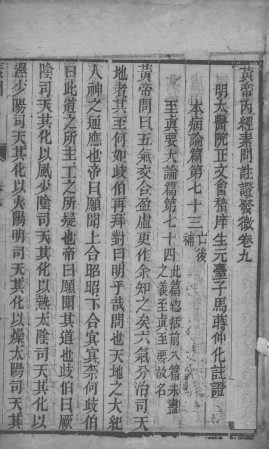 黃帝內經素問註證發微卷九
明太醫院正文會稽庠生元臺子馬蒔仲化註證
本病論篇第七十三亡後補
至真要大論篇第七十四此篇總括前八篇未盡之義至真至要故名
黃帝問曰五氣交合盈虛更作余知之矣六氣分治司天
地者其至何如歧伯再拜對曰明乎哉問也天地之大紀
人神之通應也帝曰願聞上合昭昭下合冥冥奈何歧伯
曰此道之所主工之所疑也帝曰願聞其道也歧伯曰厥
陰司天其化以風少陰司天其化以熱太陰司天其化以
濕少陽司天其化以火陽明司天其化以燥太陽司天其